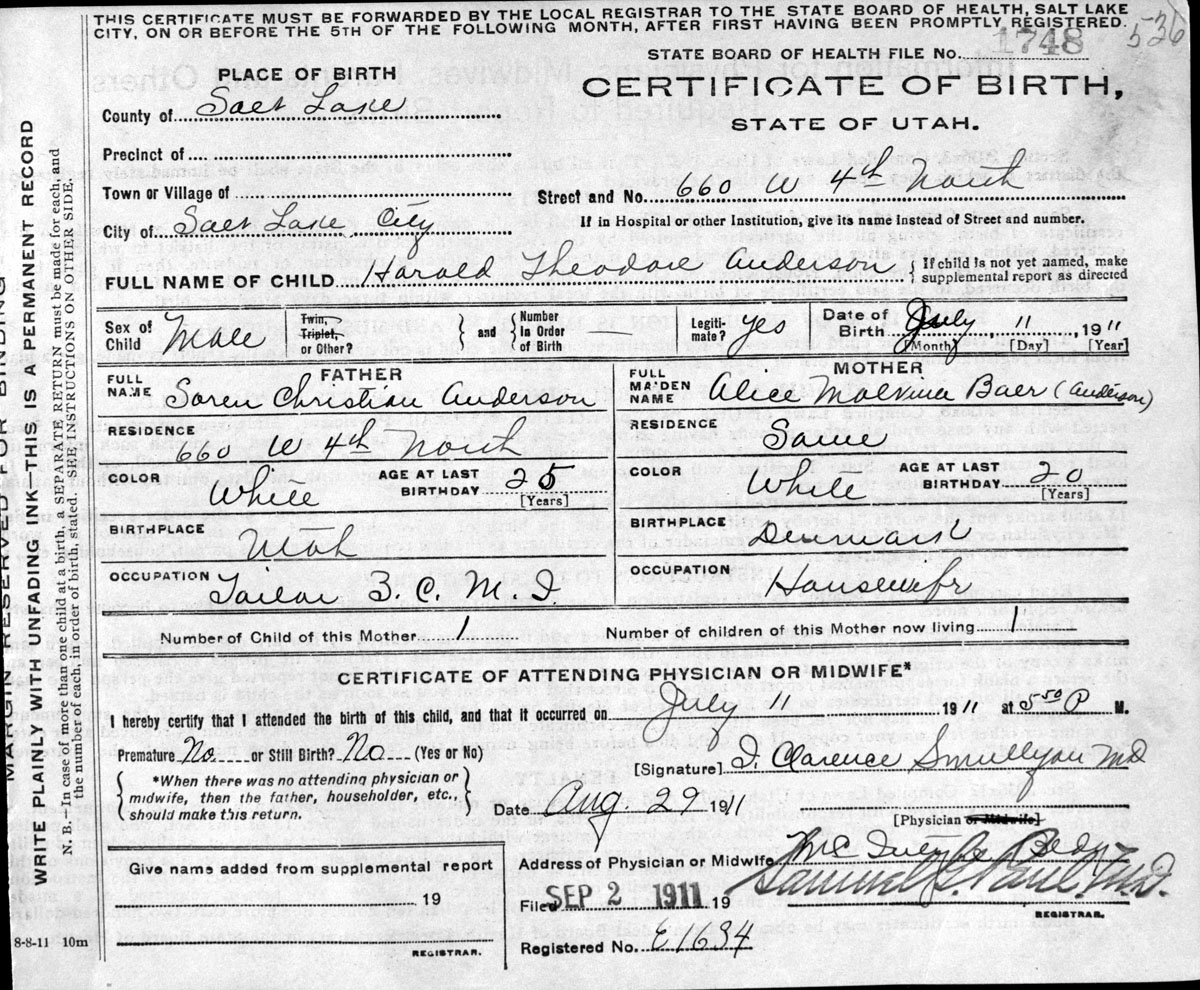 THIS CERTIFICATE MUST BE FORWARDED BY THE LOCAL REGISTRAR TO THE STATE BOARD OF HEALTH, SALT LAKE
CITY, ON OR BEFORE THE 5TH OF THE FOLLOWING MONTH, AFTER FIRST HAVING BEEN PROMPTLY REGISTERED.
536
STATE BOARD OF HEALTH FILE No. 1748
CERTIFICATE OF BIRTH,
STATE OF UTAH.
PLACE OF BIRTH
County of Salt Lake
Precinct of
Town or Village of
Street and No. 660 W 4th North
City of Salt Lake City
If in Hospital or other Institution, give its name instead of Street and number.
FULL NAME OF CHILD Harold Theodore Anderson { If child is not yet named, make
supplemental report as directed
Sex of Child Male
Twin, Triplet, or Other? } and { Number in Order of Birth
Legitimate? yes
Date of Birth July 11, 1911
[Month] [Day] [Year]
FATHER
FULL NAME Soren Christian Anderson
RESIDENCE 660 W 4th North
COLOR White AGE AT LAST BIRTHDAY 25 [Years]
BIRTHPLACE Utah
OCCUPATION Tailor Z. C. M. I.
MOTHER
FULL MAIDEN NAME Alice Malvina Baer (Anderson)
RESIDENCE Same
COLOR White AGE AT LAST BIRTHDAY 20 [Years]
BIRTHPLACE Denmark
OCCUPATION Housewife
Number of Child of this Mother 1 Number of children of this Mother now living 1
CERTIFICATE OF ATTENDING PHYSICIAN OR MIDWIFE*
I hereby certify that I attended the birth of this child, and that it occurred on July 11 1911 at 5 50 P M.
Premature No or Still Birth? No (Yes or No)
{ *When there was no attending physician or
midwife, then the father, householder, etc.,
should make this return. }
[Signature] Clarence Smullyan MD
[Physician or Midwife]
Date Aug 29 1911
Give name added from supplemental report
19
REGISTRAR.
Address of Physician or Midwife
Filed SEP 2 1911 19
REGISTRAR.
Registered No. E1634
8-8-11 10m
MARGIN RESERVED FOR BINDING
WRITE PLAINLY WITH UNFADING INK—THIS IS A PERMANENT RECORD
N. B.—In case of more than one child at a birth, a SEPARATE RETURN must be made for each, and
the number of each, in order of birth, stated. SEE INSTRUCTIONS ON OTHER SIDE.